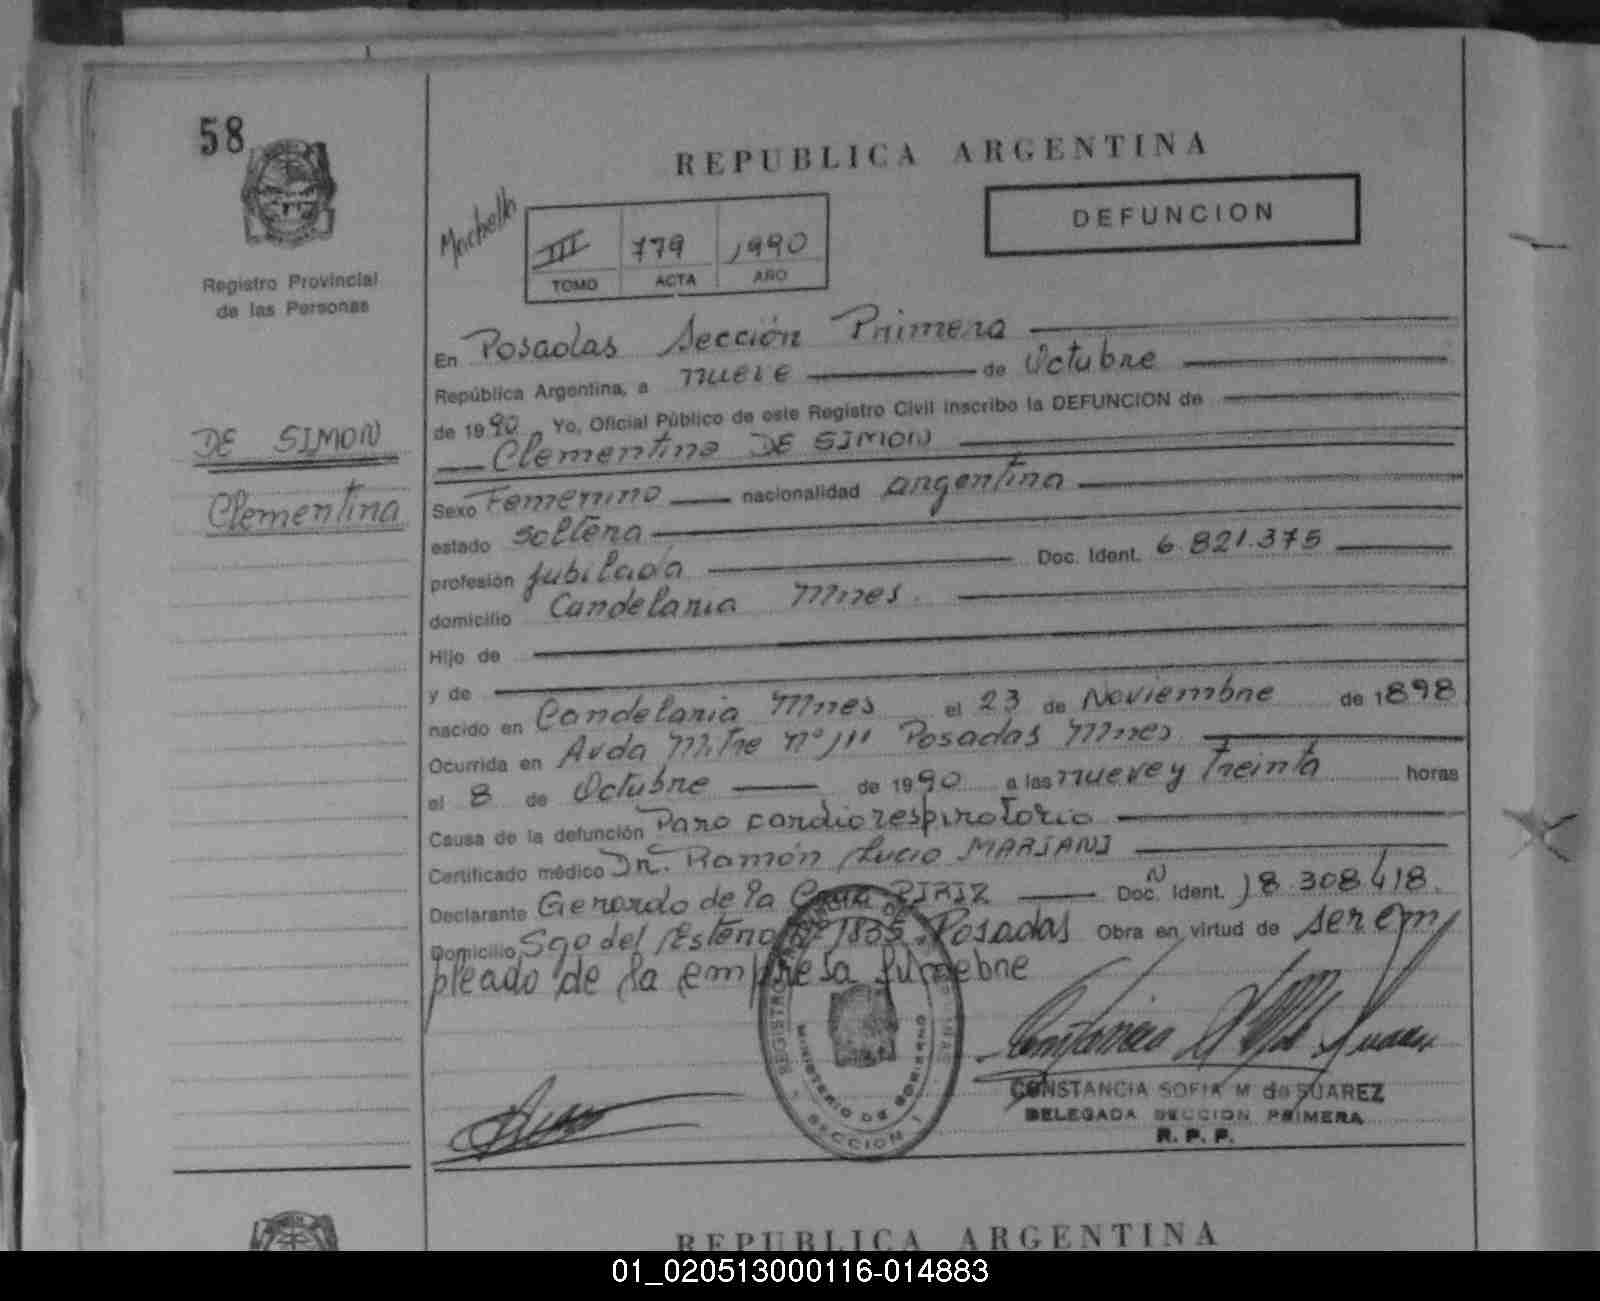 58
REPUBLICA ARGENTINA
DEFUNCION
III 779 1990
TOMO ACTA AÑO
Registro Provincial
de las Personas
DE SIMON
Clementina
En Posadas Sección Primera
República Argentina, a nueve de Octubre
de 1990 Yo, Oficial Público de este Registro Civil inscribo la DEFUNCION de
Clementina DE SIMON
Sexo Femenino nacionalidad argentina
estado soltera
profesión jubilada Doc. Ident. 6.821.375
domicilio Candelaria Mnes.
Hijo de
y de
nacido en Candelaria Mnes el 23 de Noviembre de 1898
Ocurrida en Avda Mitre nº 111 Posadas Mnes
el 8 de Octubre de 1990 a las nueve y treinta horas
Causa de la defunción Paro cardiorespiratorio
Certificado médico Dr. Ramón Lucio MARIANI
Declarante Gerardo de la Cruz PIRIZ Doc. N Ident. 18.308.418.
Domicilio Sgo del Estero 1835 Posadas Obra en virtud de ser em
pleado de la empresa fúnebre
MINISTERIO DE GOBIERNO
SECCION 1
CONSTANCIA SOFIA M de SUAREZ
DELEGADA SECCION PRIMERA
R. P. P.
REPUBLICA ARGENTINA
01_020513000116-014883